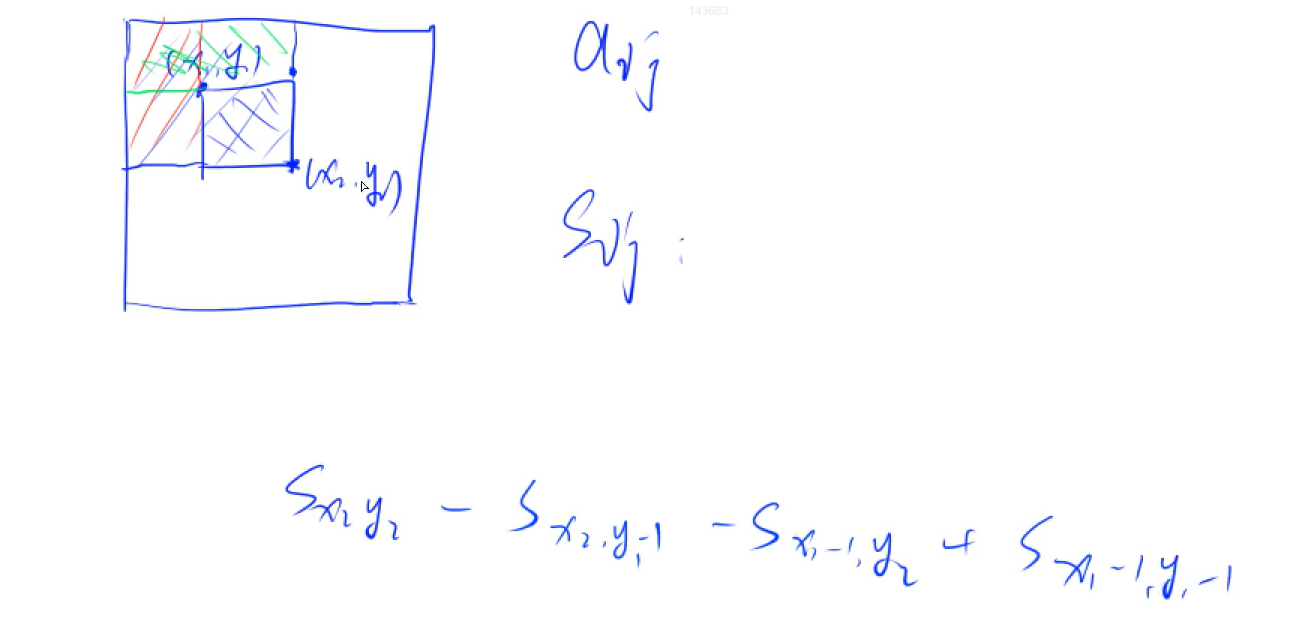 143583
a_{ij}
(x_1, y_1)
(x_2, y_2)
S_{ij} :
S_{x_2 y_2} - S_{x_2, y_1 - 1} - S_{x_1 - 1, y_2} + S_{x_1 - 1, y_1 - 1}